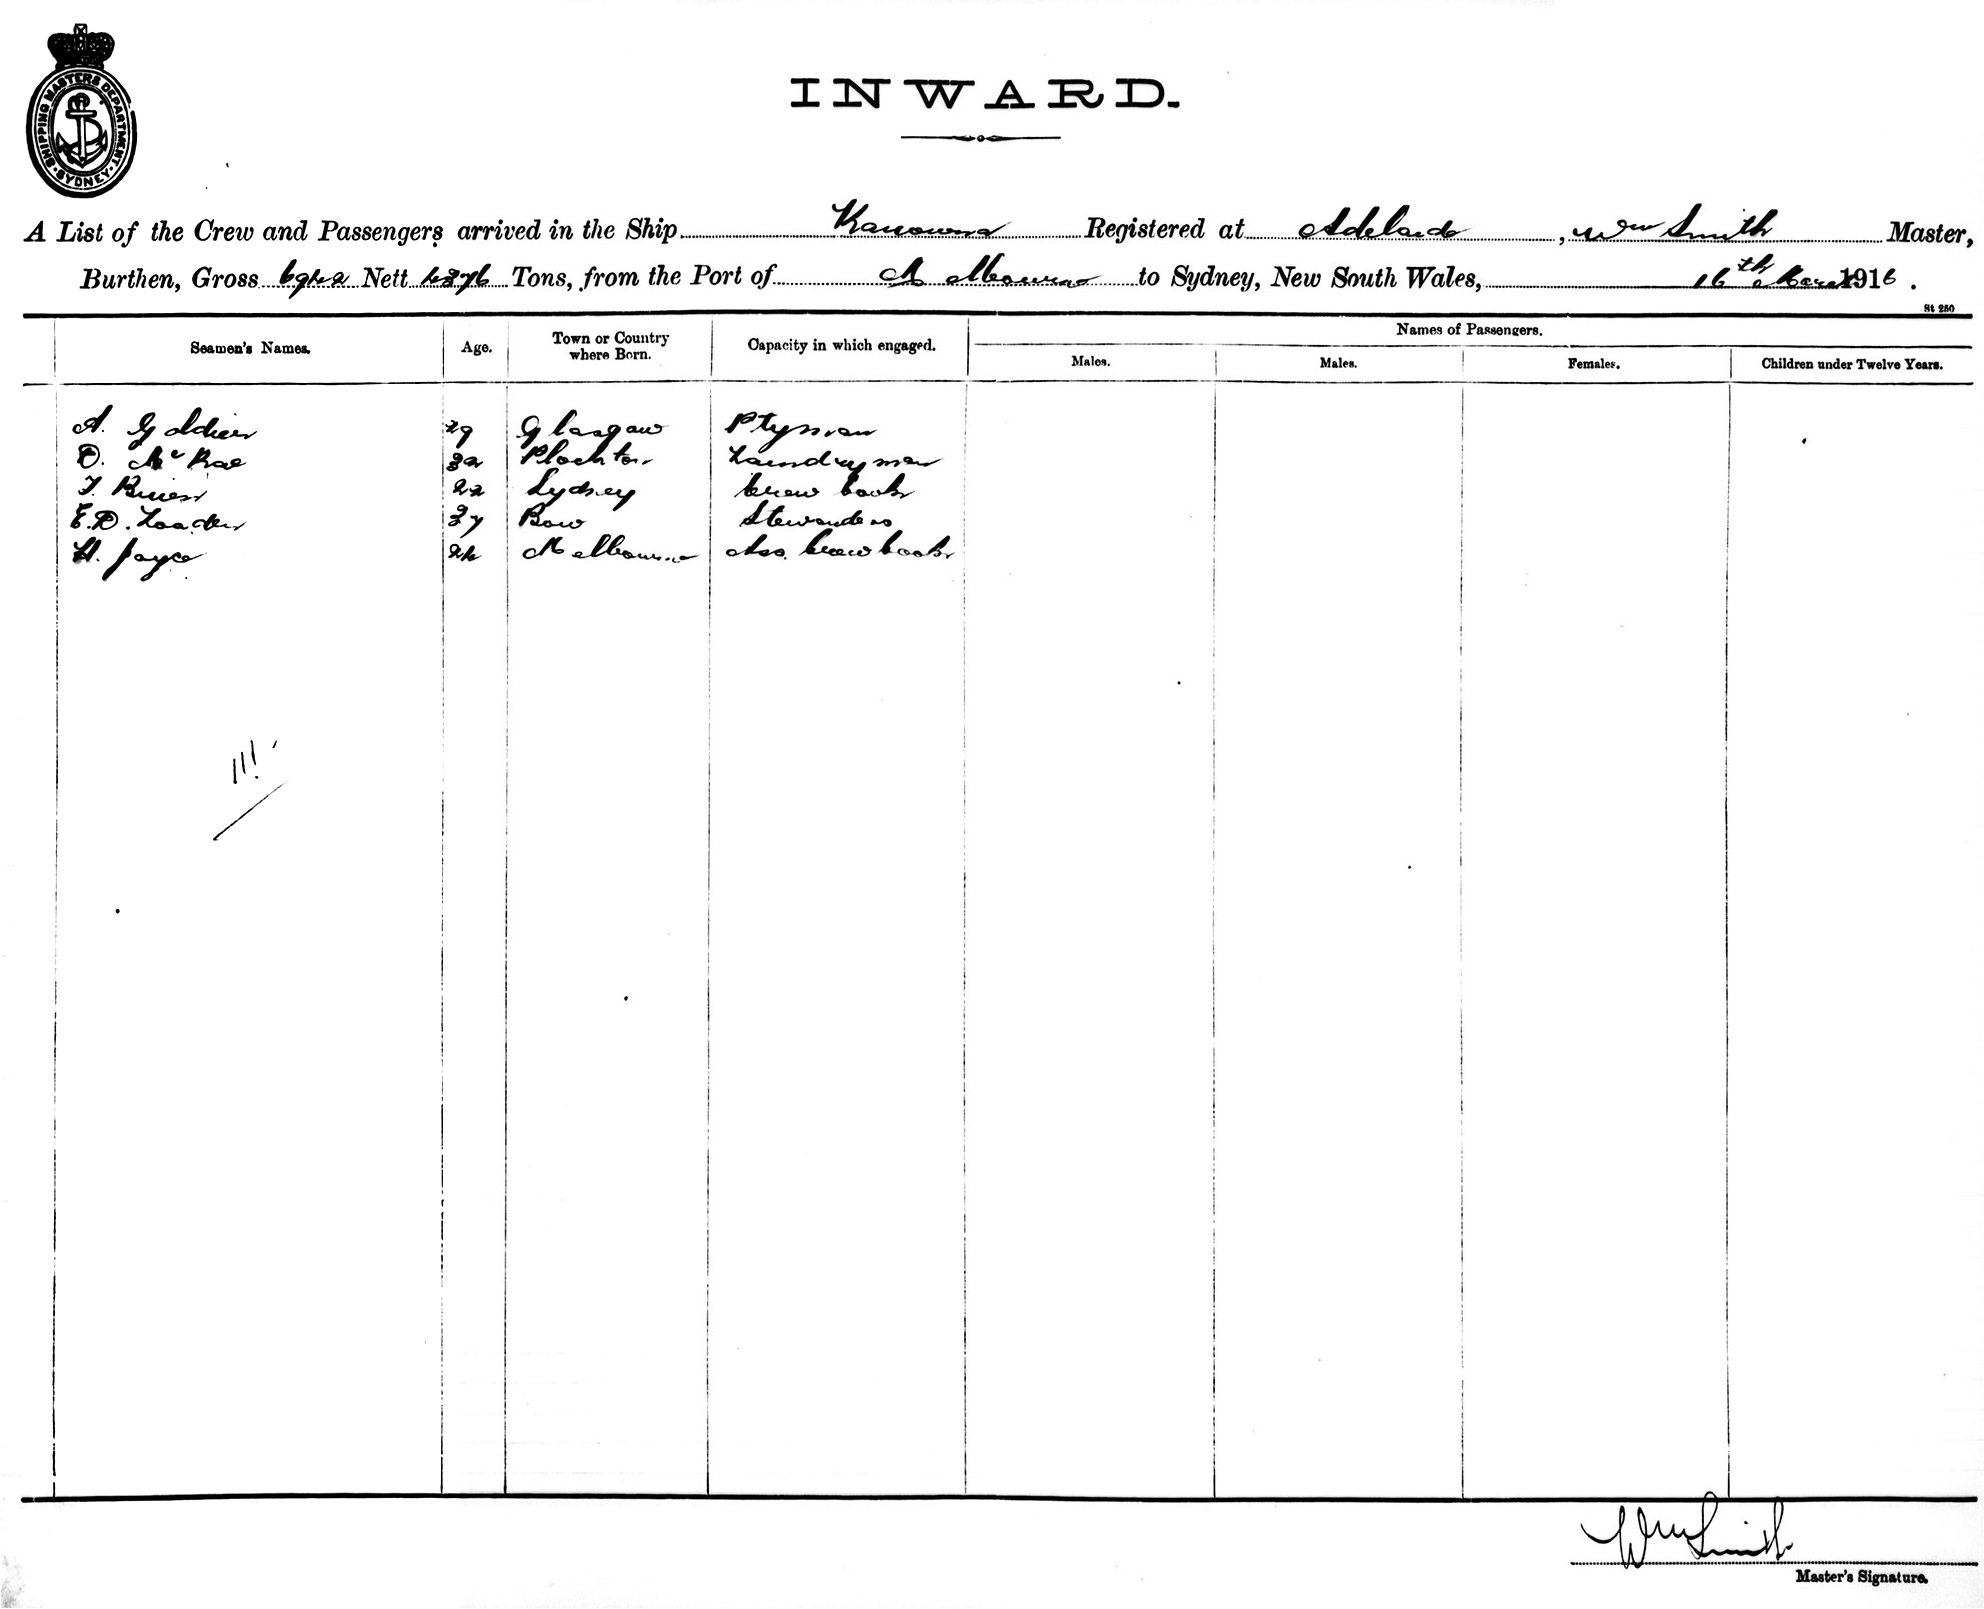 SHIPPING MASTERS DEPARTMENT
SYDNEY
INWARD.
A List of the Crew and Passengers arrived in the Ship Kanowna Registered at Adelaide, Wm Smith Master,
Burthen, Gross 6942 Nett 4376 Tons, from the Port of Melbourne to Sydney, New South Wales, 16th March 1916.
St 250
Seamen's Names. Age. Town or Country where Born. Capacity in which engaged. Names of Passengers.
Males. Males. Females. Children under Twelve Years.
A. 29 Glasgow Ptyman
D. McRae 32 Plockton Laundryman
T. 22 Sydney Crew Cook
E.D. Loader 37 Bow Stewardess
H. Joyce 24 Melbourne Ass. Crew Cook
111
Wm Smith
Master's Signature.